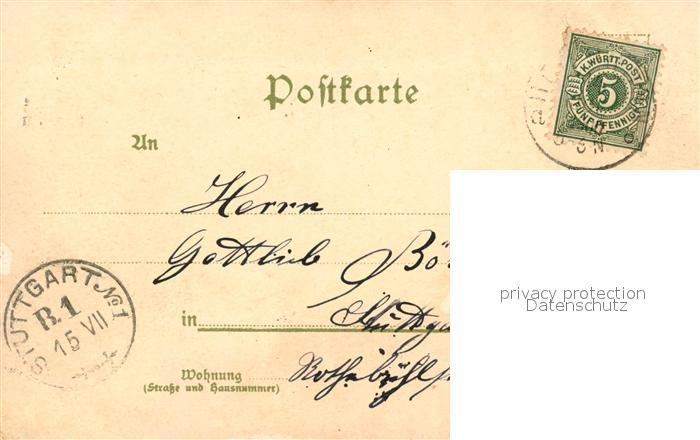 Postkarte
K. WÜRTT. POST
5
FÜNF PFENNIG
3 N.
An
Herrn
Gottlieb Bö
privacy protection
Datenschutz
STUTTGART No. 1
B. 1
15 VII
in Stuttga
Wohnung
(Straße und Hausnummer)